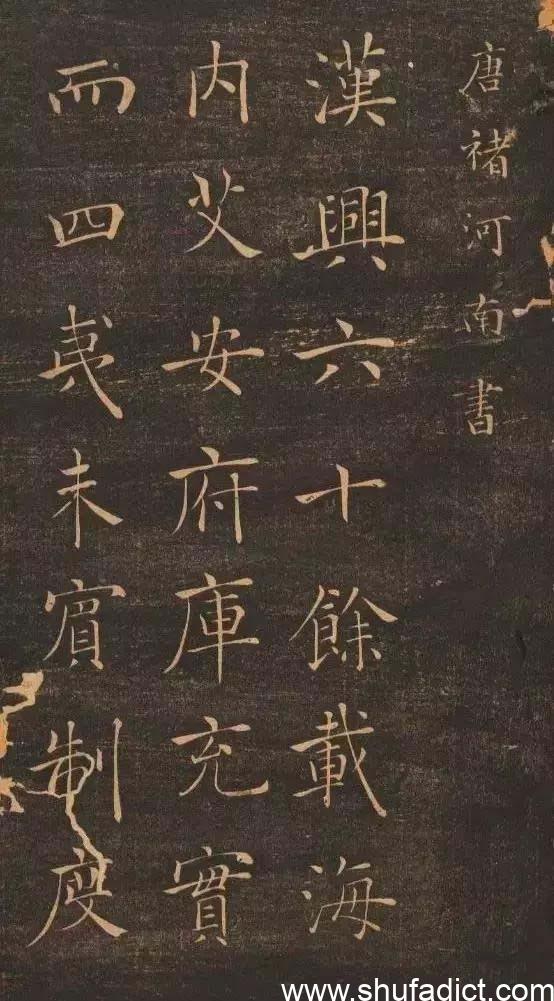 唐褚河南書
漢興六十餘載海
内艾安府庫充實
而四夷未賔制度
www.shufadict.com